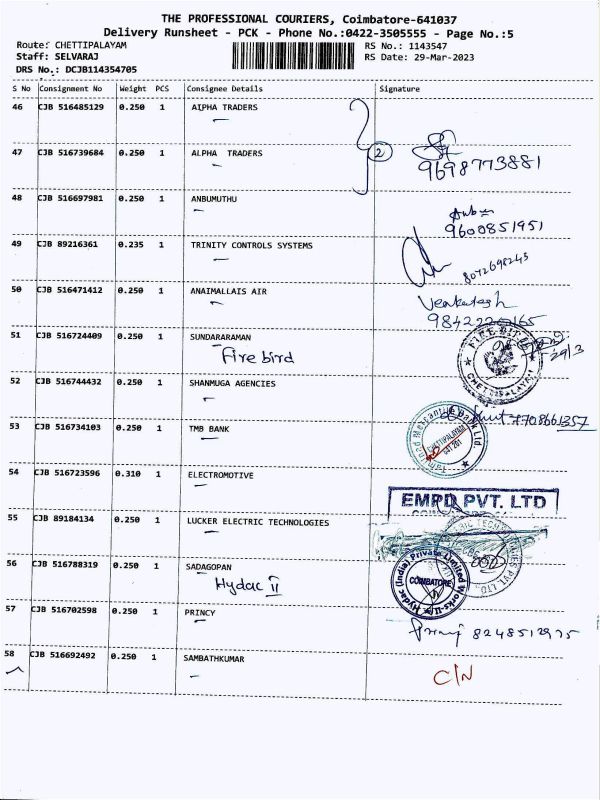 THE PROFESSIONAL COURIERS, Coimbatore-641037
Delivery Runsheet - PCK - Phone No.:0422-3505555 - Page No.:5
Route: CHETTIPALAYAM RS No.: 1143547
Staff: SELVARAJ RS Date: 29-Mar-2023
DRS No.: DCJB114354705
S No Consignment No Weight PCS Consignee Details Signature
46 CJB 516485129 0.250 1 ALPHA TRADERS
47 CJB 516739684 0.250 1 ALPHA TRADERS 2
9698773881
48 CJB 516697981 0.250 1 ANBUMUTHU
9600851951
49 CJB 89216361 0.235 1 TRINITY CONTROLS SYSTEMS
8072698245
50 CJB 516471412 0.250 1 ANAIMALLAIS AIR Venkatesh
51 CJB 516724409 0.250 1 SUNDARARAMAN
Fire bird
FIRE BIRD
CHETTIPALAYAM
52 CJB 516744432 0.250 1 SHANMUGA AGENCIES
7708661357
53 CJB 516734103 0.250 1 TMB BANK
Tamilnad Mercantile Bank Ltd.
CHETTIPALAYAM
54 CJB 516723596 0.310 1 ELECTROMOTIVE
EMPD PVT. LTD
55 CJB 89184134 0.250 1 LUCKER ELECTRIC TECHNOLOGIES
56 CJB 516788319 0.250 1 SADAGOPAN
Hydac II
Hydac (India) Private Limited Works-II
COIMBATORE
57 CJB 516702598 0.250 1 PRINCY
8248512975
58 CJB 516692492 0.250 1 SAMBATHKUMAR
C/N